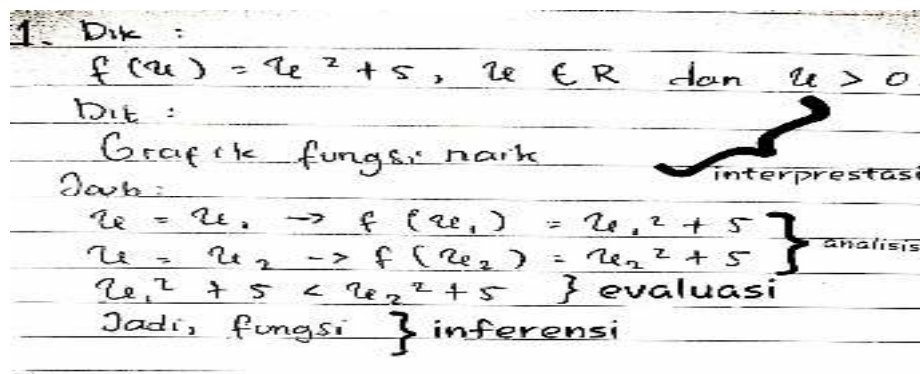 1. Dik :
f(x) = x² + 5, x ∈ R dan x > 0
Dit :
Grafik fungsi naik
interprestasi
Jawb :
x = x₁ → f(x₁) = x₁² + 5
x = x₂ -> f(x₂) = x₂² + 5 } analisis
x₁² + 5 < x₂² + 5 } evaluasi
Jadi, fungsi } inferensi